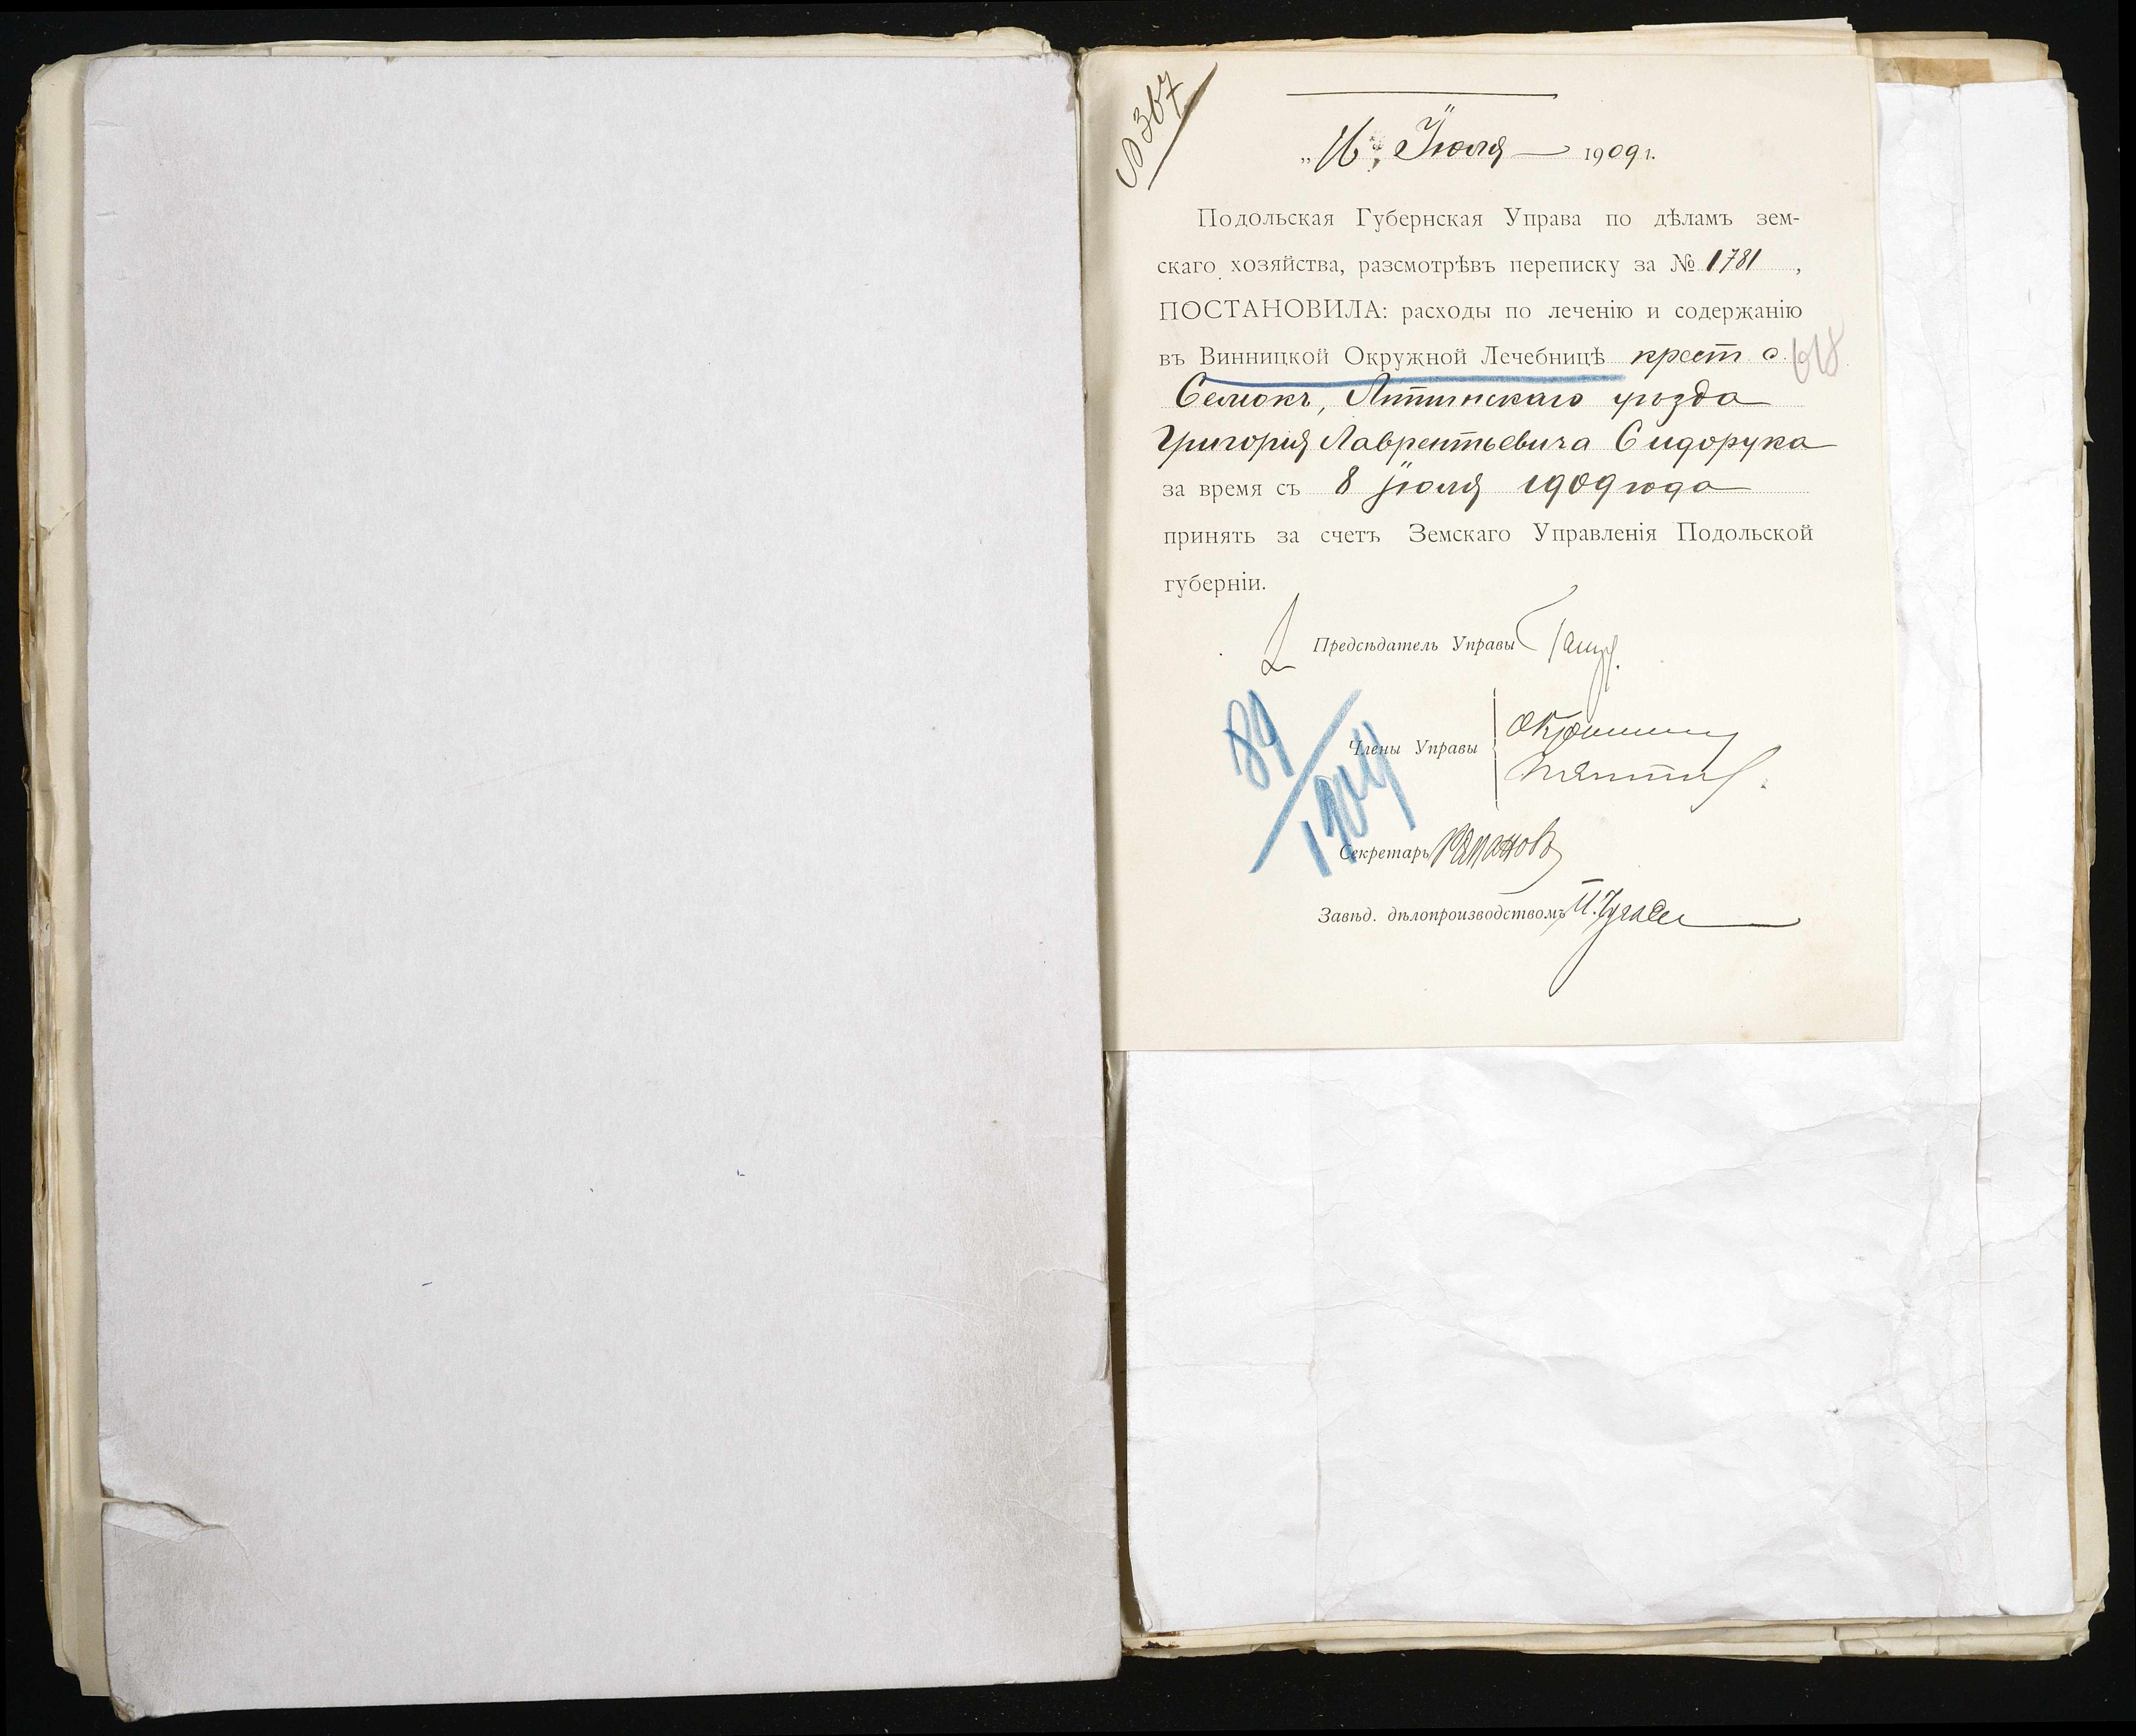 № 367
„16„ Іюля 1909 г.
Подольская Губернская Управа по дѣламъ зем-
скаго хозяйства, разсмотрѣвъ переписку за № 1781,
ПОСТАНОВИЛА: расходы по леченію и содержанію
въ Винницкой Окружной Лечебницѣ крест с.
618
Селюкъ, Литинскаго уѣзда
Григорія Лаврентьевича Сидорука
за время съ 8 Іюля 1909 года
принять за счетъ Земскаго Управленія Подольской
губерніи.
Предсѣдатель Управы
89/1909
Члены Управы
Секретарь
Завѣд. дѣлопроизводствомъ